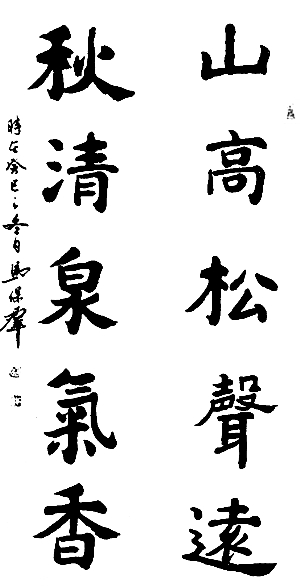 山高松聲遠
秋清泉氣香
時在癸巳之冬月馬保群